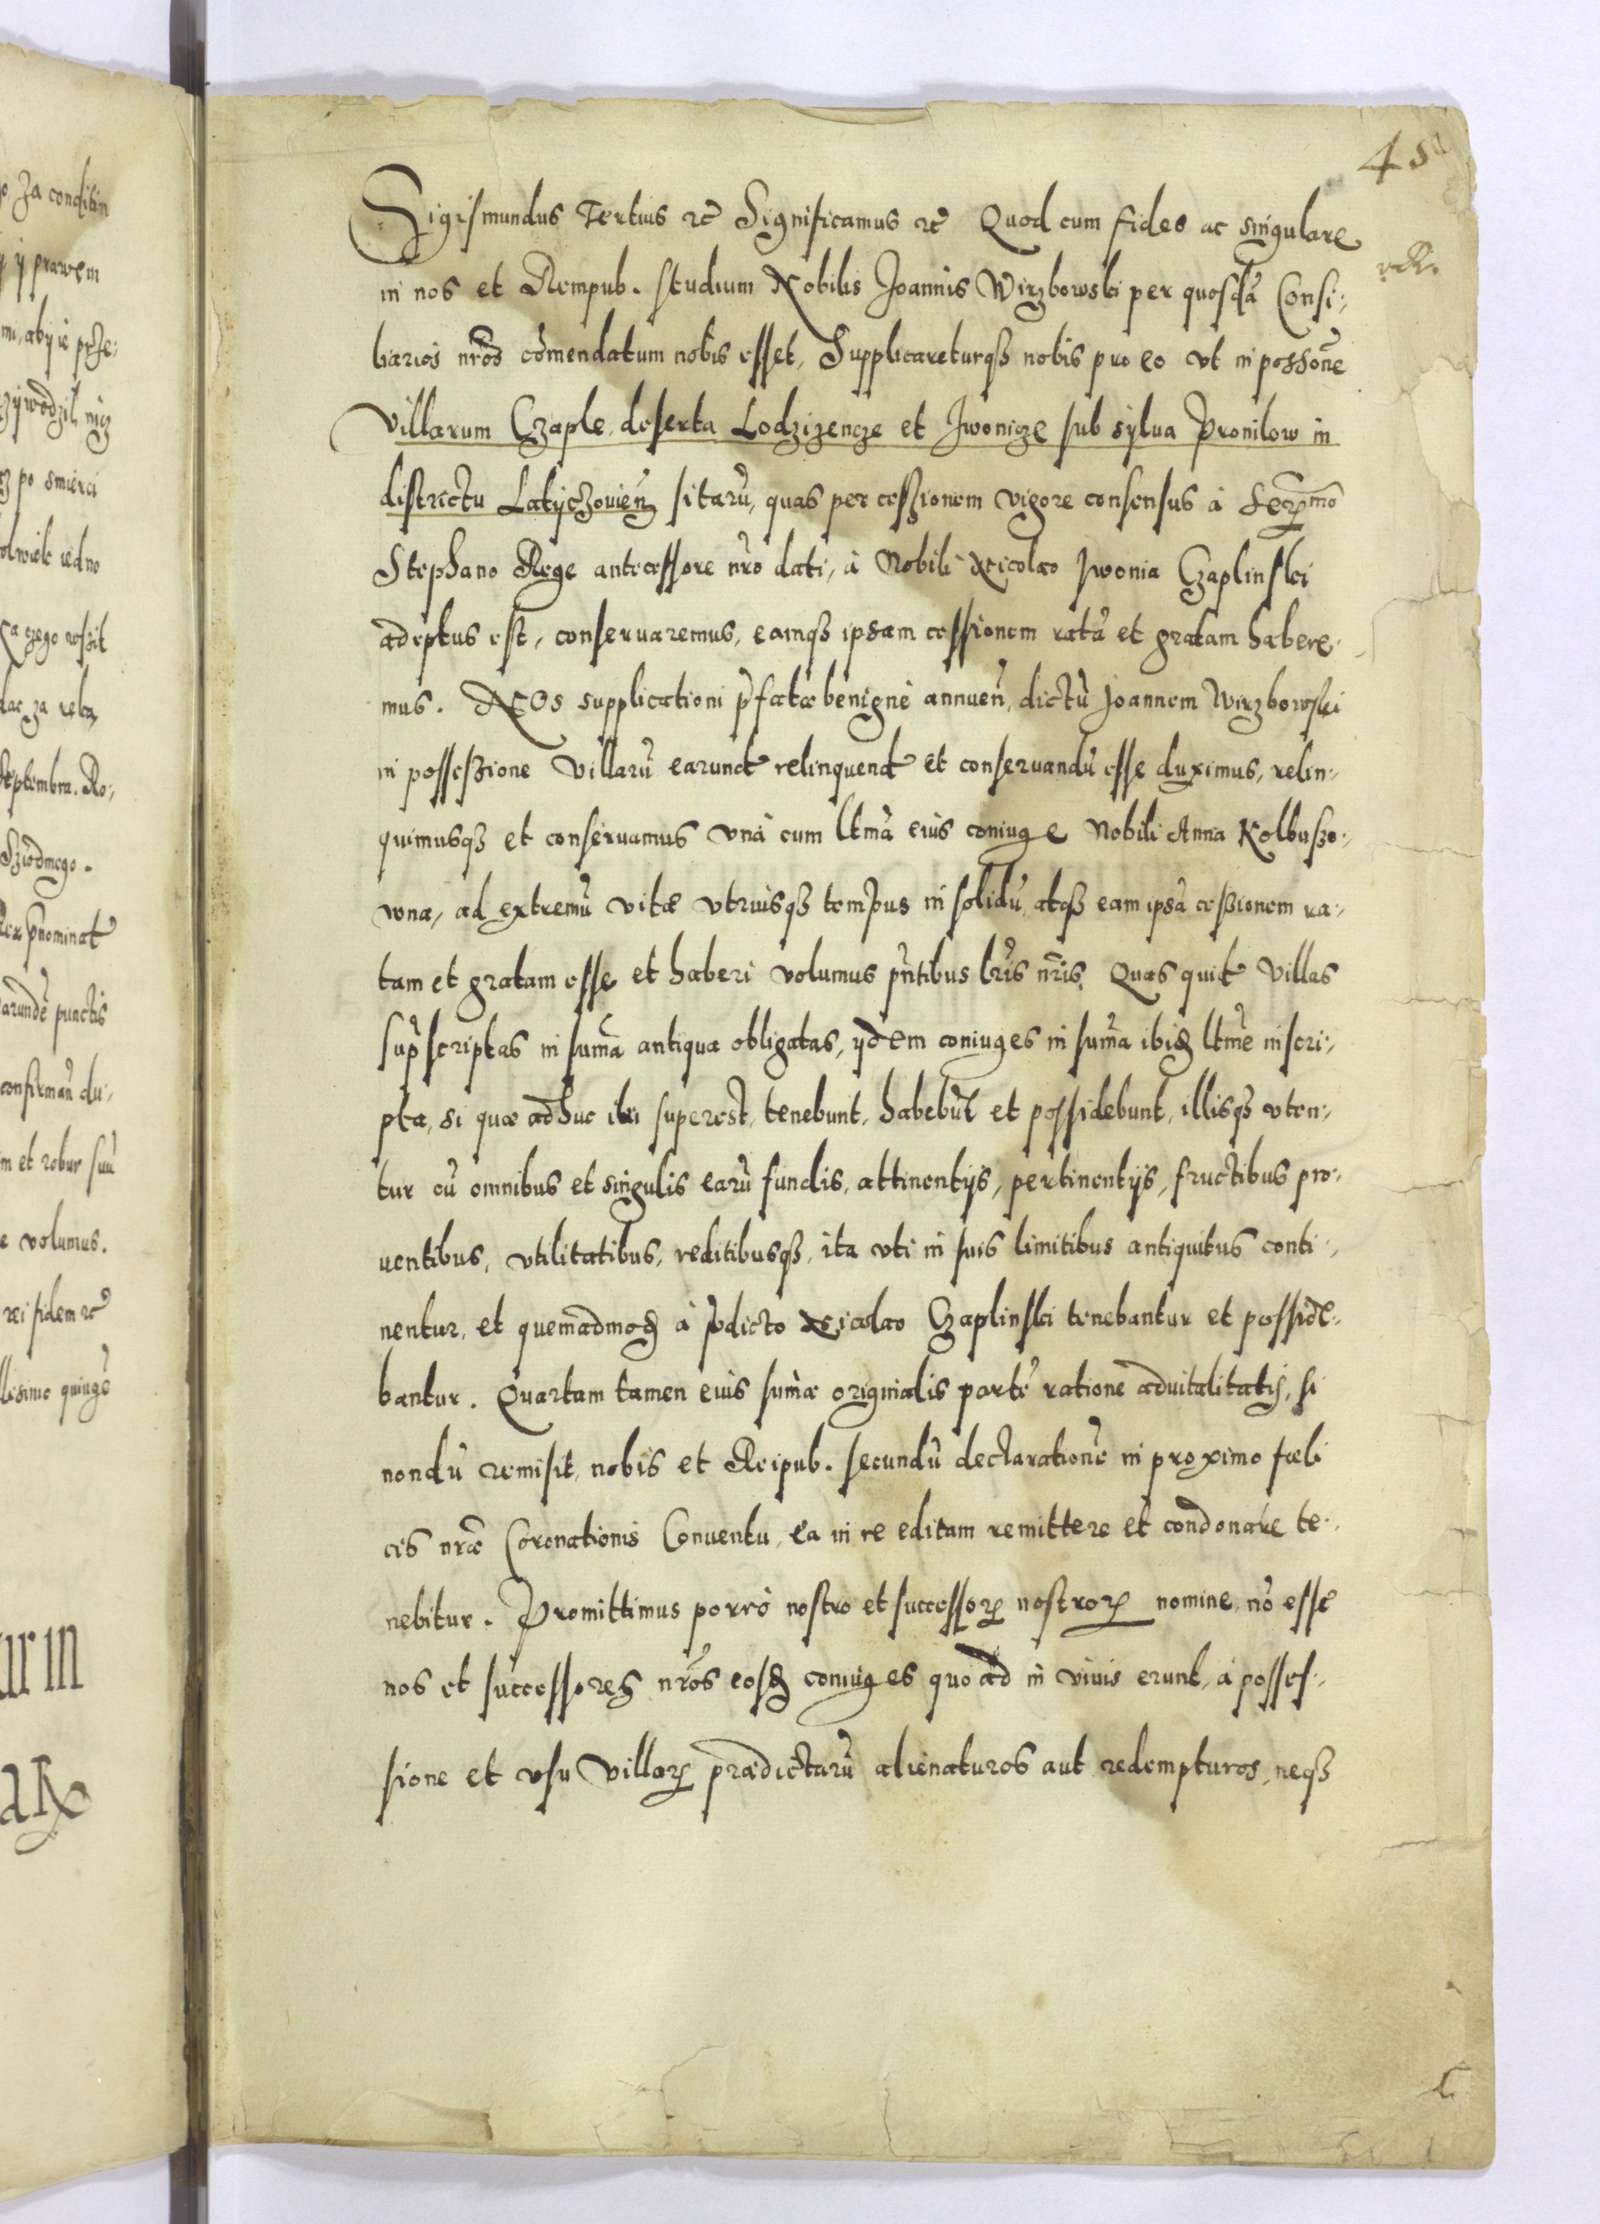 45
Sigismundus Tertius etc̄ Significamus etc̄ Quod cum fides ac singulare
in nos et Rempub. studium Nobilis Joannis Wirzbowski per quosdā Consi:
liarios nr̄os cōmendatum nobis esset, Supplicareturqȝ nobis pro eo vt in possōne
Villarum Czaple, deserta Lodzizencze et Jwonicze sub sylua Pronilow in
districtu Latyczouien̄ sitarū, quas per cessionem vigore consensus à Ser̄mo
Stephano Rege antecessore nr̄o dati, à Nobili Nicolao Jwonia Czaplinski
adeptus est, conseruaremus, eamqȝ ipsam cessionem ratā et gratam habere:
mus. NOs supplicationi p̄fatæ benignè annuen̄, dictū Joannem Wirzbowski
in possessione Villarū earund̄ relinquend̄ et conseruandū esse duximus, relin:
quimusqȝ et conseruamus vnà cum ltm̄a eius coniuge Nobili Anna Kolbuszo:
wna, ad extremū vitæ vtriusqȝ tempus in solidū, atqȝ eam ipsā cessionem ra:
tam et gratam esse et haberi volumus pn̄tibus lr̄is nr̄is. Quas quid̄ Villas
sup̄scriptas in sum̄a antiqua obligatas, ijdem coniuges in sum̄a ibid̄ ltm̄e inscri:
pta, si quæ adhuc ibi superest, tenebunt, habebūt et possidebunt, illisqȝ vten:
tur cū omnibus et singulis earū fundis, attinentijs, pertinentijs, fructibus pro:
uentibus, vtilitatibus, reditibusqȝ, ita vti in suis limitibus antiquitus conti:
nentur, et quemadmod̄ à p̄dicto Nicolao Czaplinski tenebantur et posside:
bantur. Quartam tamen eius sum̄æ originalis partē ratione aduitalitatis, si
nondū remisit, nobis et Reipub. secundū declarationē in proximo fæli
cis nr̄æ Coronationis Conuentu, ea in re editam remittere et condonare te:
nebitur. Promittimus porrò nostro et successorꝝ nostrorꝝ nomine, nō esse
nos et successores nr̄os eosd̄ coniuges quoad in viuis erunt, à posses:
sione et vsu Villarꝝ prædictarū alienaturos aut redempturos, neqȝ